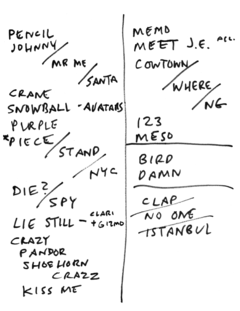 PENCIL
JOHNNY
MR ME
SANTA
CRANE
SNOWBALL - AVATARS
PURPLE
*PIECE
STAND
NYC
DIE?
SPY
LIE STILL - CLARI
+ GIZMO
CRAZY
PANDOR
SHOEHORN
CRAZZ
KISS ME
MEMO
MEET J.E. ACC.
COWTOWN
WHERE
NG
123
MESO
BIRD
DAMN
CLAP
NO ONE
ISTANBUL